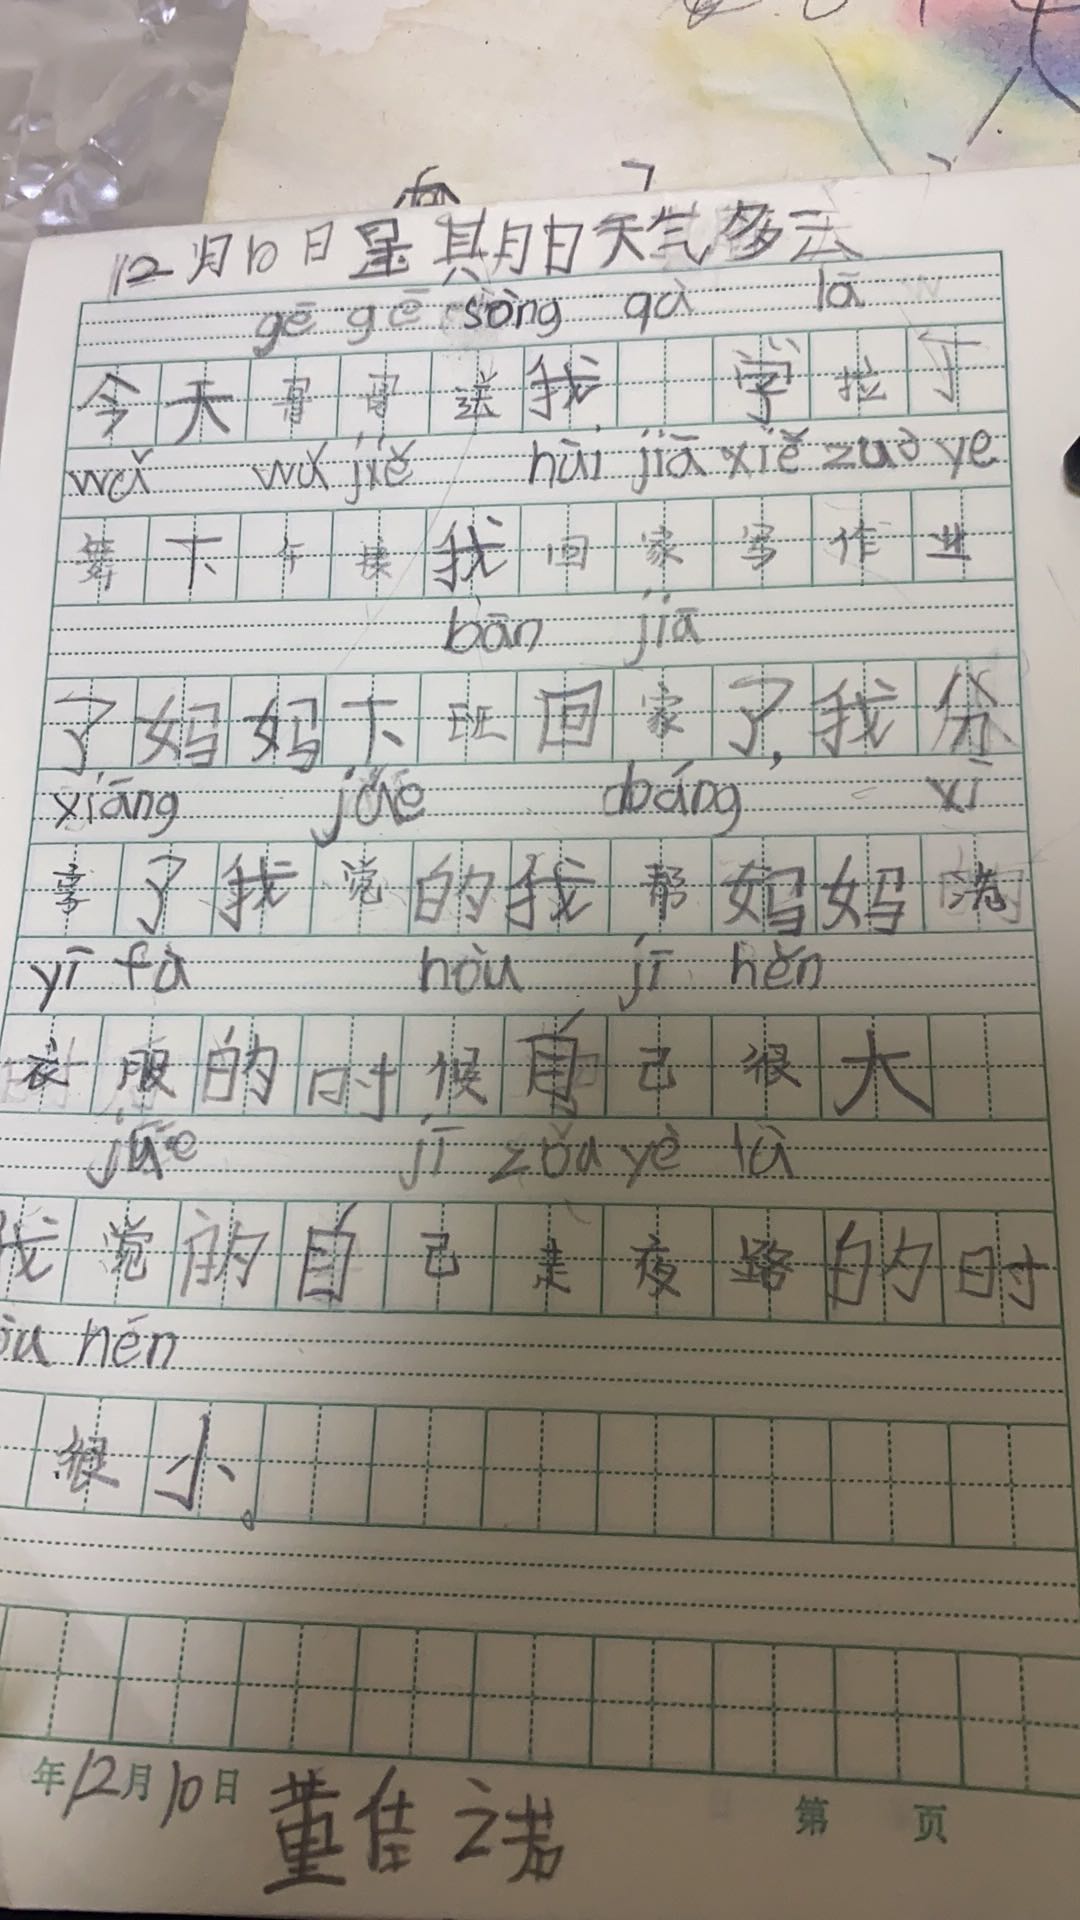 12月10日星期日天气多云
gē gē sòng qù lā
今天哥哥送我 学拉丁
wǔ wǔ jiě húi jiā xiě zuò ye
舞下午接我回家写作业
bān jiā
了妈妈下班回家了,我分
xiǎng júe bāng xǐ
享了我觉的我帮妈妈洗
yī fú hòu jǐ hěn
衣服的时候自己很大
júe jǐ zǒu yè lù
我觉的自己走夜路的时
òu hěn
很小。
年12月10日 董佳之若
第 页